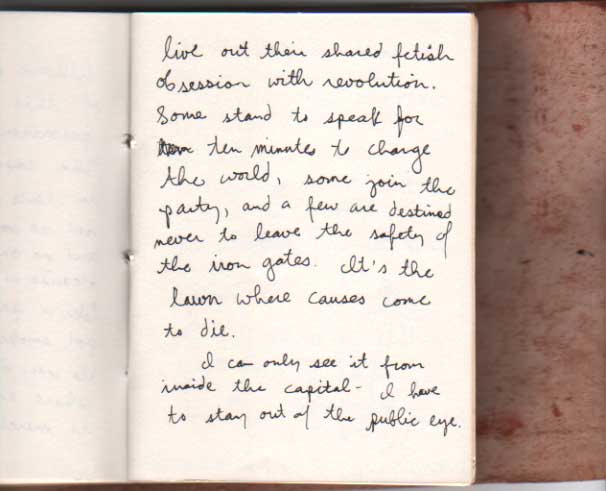 live out their shared fetish
obsession with revolution.
Some stand to speak for
ten minutes to change
the world, some join the
party, and a few are destined
never to leave the safety of
the iron gates. It's the
lawn where causes come
to die.
I can only see it from
inside the capital - I have
to stay out of the public eye.